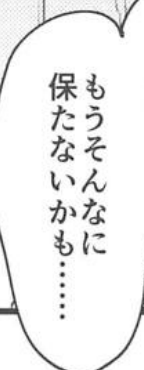 もうそんなに
保たないかも………